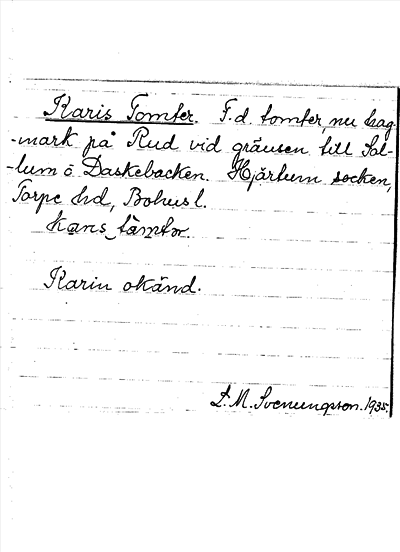 Karis Tomter. F.d. tomter, nu hag-
-mark på Rud vid gränsen till Sol-
-lum o Daskebacken. Hjärtum socken,
Torpe hd, Bohusl.
kans tåmtər.
Karin okänd.
L.M. Svenungsson. 1935.